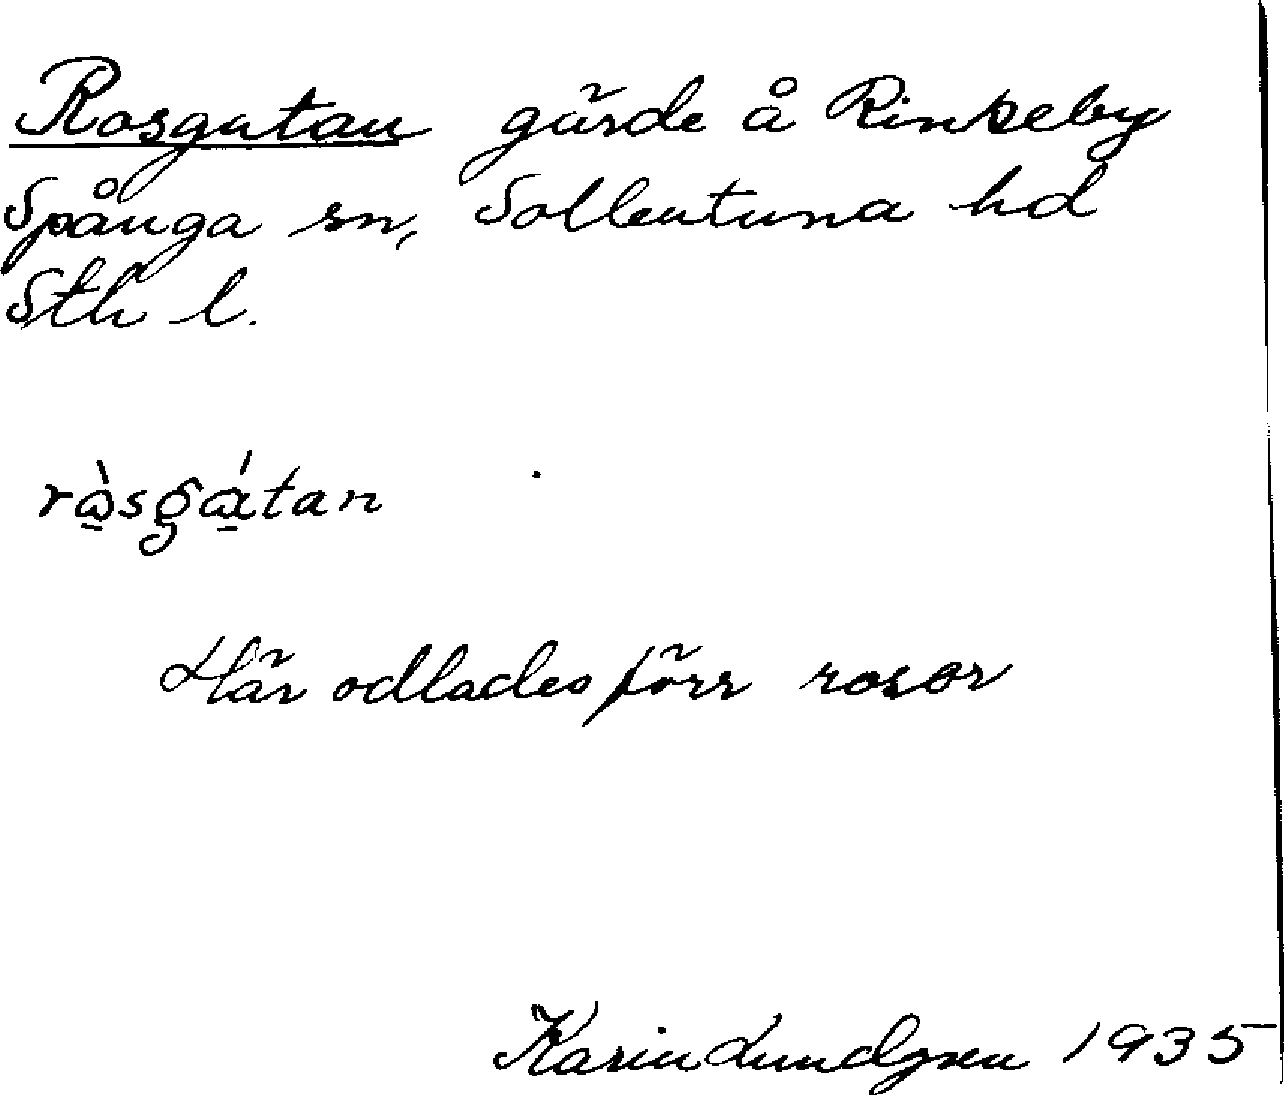 Rosgatan gärde å Rinkeby
Spånga sn, Sollentuna hd
Sth l.
ràsgátan
Här odlades förr rosor
Karin Lundgren 1935